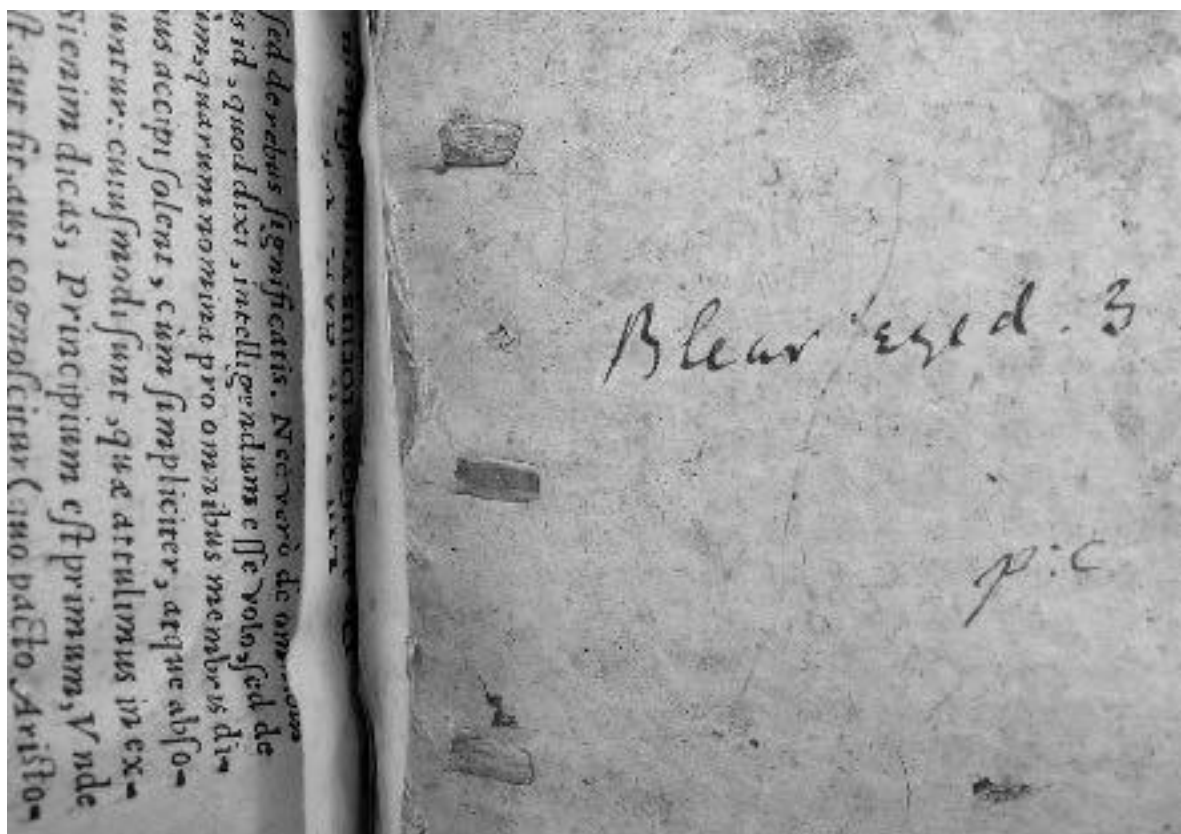 sed de rebus significatis. Nec verò de
is id, quod dixi, intelligendum esse volo, sed de
im, quarum nomina pro omnibus membris di-
us accipi solent, cùm simpliciter, atque abso-
untur: cuiusmodi sunt, quæ attulimus in ex-
Si enim dicas, Principium est primum, Vnde
st, aut fit aut cognoscitur (quo pacto Aristo-
Blear eyed . 3 .
p: c